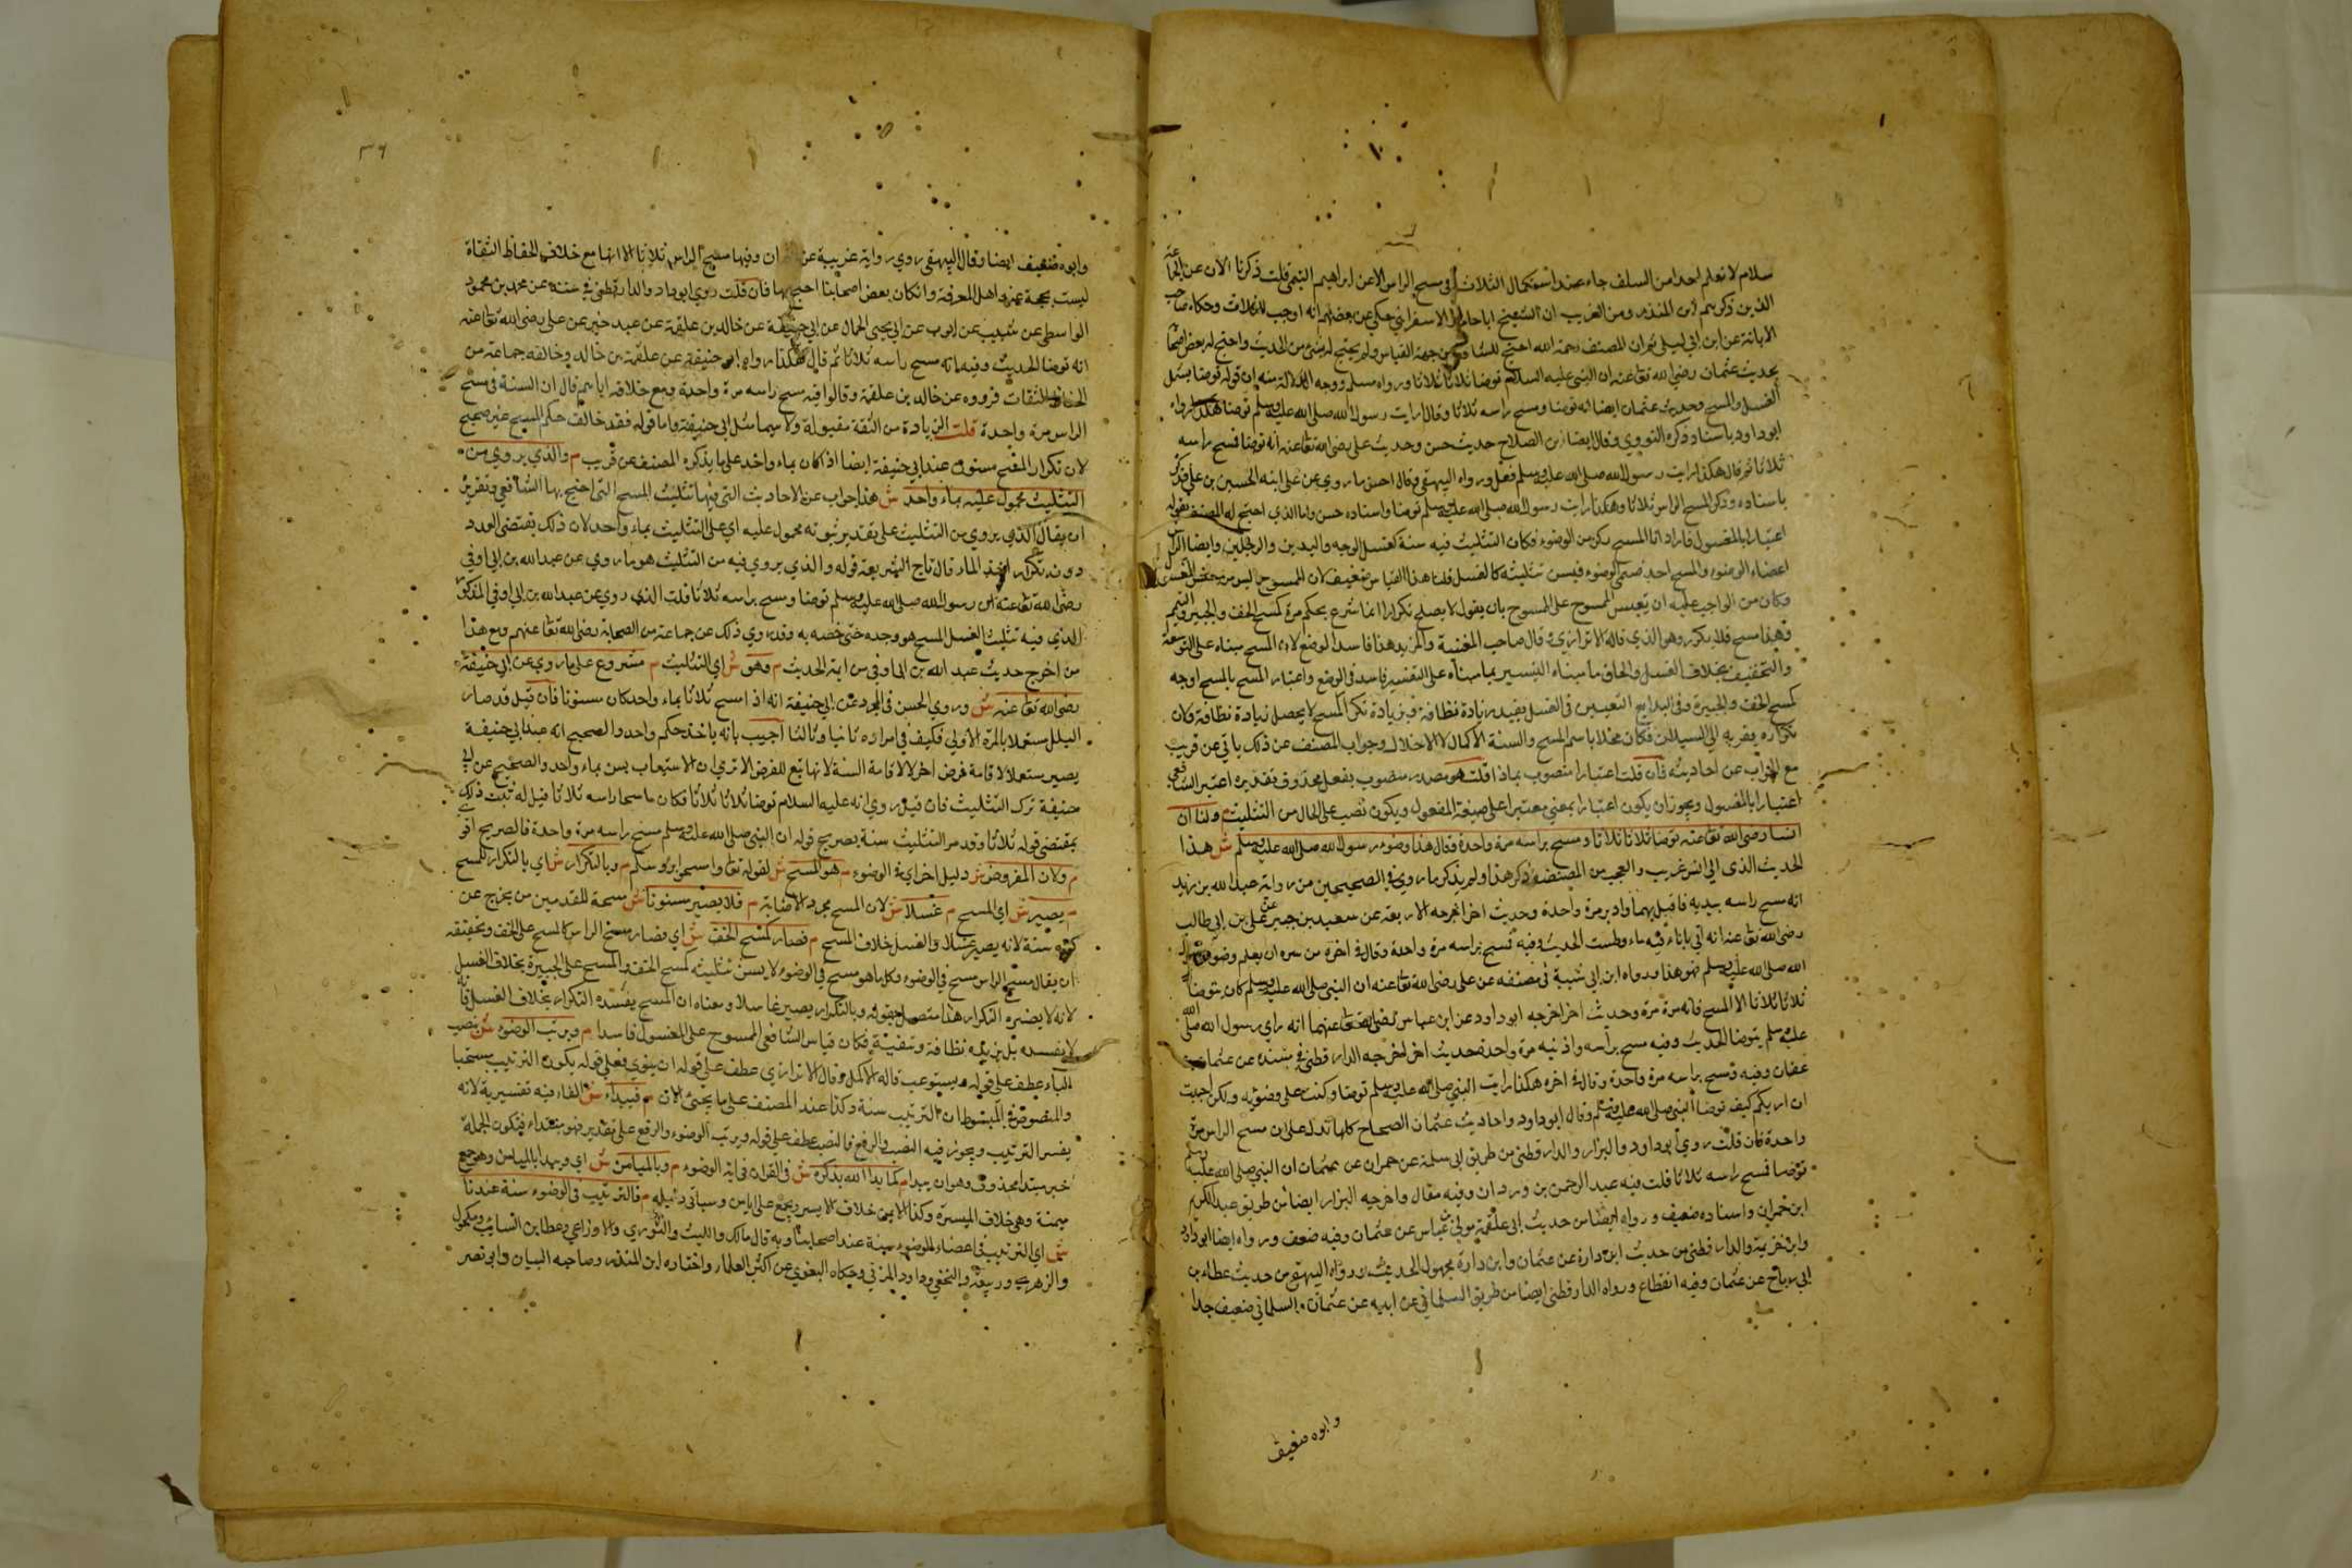 سلام لا نعلم احدا من السلف جاء عنه استكمال الثلاث في مسح الراس الا عن ابراهيم التيمي قلت ذكرنا الان عن الجماعة
الذين ذكرهم ابن المنذر ومن الغريب ان الشيخ ابا حامد الاسفرايني حكي عن بعضهم انه اوجب الثلاث وحكاه صاحب
الابانة عن ابن ابي ليلي ثم ان المصنف رحمه الله احتج للشافعي من جهة القياس ولم يحتج له بشئ من الحديث واحتج له بعض اصحابنا
بحديث عثمان رضي الله تعا عنه ان النبي عليه السلام توضا ثلاثا ثلاثا ورواه مسلم ووجه الدلالة منه ان قوله توضا يشمل
الغسل والمسح وحديث عثمان ايضا انه توضا ومسح راسه ثلاثا وقال رايت رسول الله صلى الله عليه وسلم توضا هكذا رواه
ابو داود باسناد ذكره النووي وقال ايضا ابن الصلاح حديث حسن وحديث على رضي الله تعا عنه انه توضا فمسح راسه
ثلاثا ثم قال هكذا رايت رسول الله صلى الله عليه وسلم فعل ورواه البيهقي وقال احسن ما روي عن على ابنه الحسين بن علي فذكر
باسناده وذكر المسح الراس ثلاثا وهكذا رايت رسول الله صلى الله عليه وسلم توضا واسناده حسن واما الذي احتج له المصنف بقوله
اعتبارا بالمغسول فاراد ان المسح ركن من الوضوء فكان التثليث فيه سنة كغسل الوجه واليدين والرجلين وايضا الراس
اعضاء الوضوء والمسح احد قسمي الوضوء فيسن تثليثه كالغسل قلنا هذا القياس ضعيف لان الممسوح ليس من جنس المغسول
وكان من الواجب عليه ان يقيس الممسوح على الممسوح بان يقول لا يصلح تكرارا انما شرع بحكم مرة كمسح الخف والجبيرة والتيمم
وهذا مسح فلا يكرر وهو الذي قاله الاترازي قال صاحب الغنية والمزيد هذا فاسد الوضع لان المسح مبناه على التوسعة
والتخفيف بخلاف الغسل والحاق ما مبناه التيسير بما مبناه على التعسير فاسد في الوضع واعتبار المسح بالمسح اوجه
كمسح الخف والجبيرة وفي البدايع التعيين في الغسل يفيد زيادة نظافة وبزيادة تكرر المسح لا يحصل زيادة نظافة ولان
تكراره يقربه الي السيلان فكان مخلا باسم المسح والسنة الاكمال لا الاخلال وجواب المصنف عن ذلك ياتي عن قريب
مع الجواب عن احاديثه فان قلت اعتبارا منصوب بماذا قلت هو مصدر منصوب بفعل محذوف تقديره اعتبر الشافعي
اعتبارا بالمغسول ويجوز ان يكون اعتبارا بمعني معتبرا على صيغة المفعول ويكون نصب على الحال من التثليث م ولنا ان
انسا رضي الله تعا عنه توضا ثلاثا ثلاثا ومسح براسه مرة واحدة فقال هذا وضوء رسول الله صلى الله عليه وسلم ش هذا
الحديث الذي الي انس غريب والعجب من المصنف ذكر هذا ولم يذكر ما روي في الصحيحين من رواية عبد الله بن زيد
انه مسح راسه بيديه فاقبل بهما وادبر مرة واحدة وحديث اخر اخرجه الاربعة عن سعيد بن جبير عن على بن ابي طالب
رضي الله تعا عنه انه اتي باناء فيه ماء وطست الحديث وفيه فمسح براسه مرة واحدة وقال في اخره من سره ان يعلم وضوء رسول
الله صلى الله عليه وسلم فهو هذا ورواه ابن ابي شيبة في مصنفه عن على رضي الله تعا عنه ان النبي صلى الله عليه وسلم كان يتوضا
ثلاثا ثلاثا الا المسح فانه مرة مرة وحديث اخر اخرجه ابو داود عن ابن عباس رضي الله تعا عنهما انه راي رسول الله صلى الله
عليه وسلم يتوضا الحديث وفيه مسح براسه واذنيه مرة واحدة وحديث اخر اخرجه الدارقطني في سننه عن عثمان بن
عفان وفيه ومسح براسه مرة واحدة وقال في اخره هكذا رايت النبي صلى الله عليه وسلم توضا وكنت على وضوئه ولكن احببت
ان اريكم كيف توضا النبي صلى الله عليه وسلم وقال ابو داود واحاديث عثمان الصحاح كلها تدل على ان مسح الراس مرة
واحدة فان قلت روي ابو داود والبزار والدارقطني من طريق ابي سلمة عن حمران عن عثمان ان النبي صلى الله عليه وسلم
توضا فمسح راسه ثلاثا قلت فيه عبد الرحمن بن وردان وفيه مقال واخرجه البزار ايضا من طريق عبد الكريم
ابن حمران واسناده ضعيف ورواه ايضا من حديث ابي علقمة مولي ابن عباس عن عثمان وفيه ضعف ورواه ايضا ابو داود
وابن خزيمة والدارقطني من حديث ابن دارة عن عثمان وابن دارة مجهول الحديث ورواه البيهقي من حديث عطاء بن
ابي رباح عن عثمان وفيه انقطاع ورواه الدارقطني ايضا من طريق السلماني عن ابيه عن عثمان والسلماني ضعيف جدا
وابوه ضعيف
٣٦
وابوه ضعيف ايضا وقال البيهقي روي رواية غريبة عن ان وفيها مسح الراس ثلاثا الا انها مع خلاف الحفاظ الثقاة
ليست بحجة عند اهل المعرفة وان كان بعض اصحابنا احتج بها فان قلت روي ابو داود والدارقطني في سننه عن محمد بن محمود
الواسطي عن شعيب بن ايوب عن ابي يحيي الحمال عن ابي حنيفة عن خالد بن علقمة عن عبد خير عن على رضي الله تعا عنه
انه توضا الحديث وفيه انه مسح راسه ثلاثا ثم قال هكذا رواه ابو حنيفة عن علقمة بن خالد وخالفه جماعة من
الحفاظ الثقات فرووه عن خالد بن علقمة وقالوا فيه مسح راسه مرة واحدة ومع خلافه اياهم قال ان السنة في مسح
الراس مرة واحدة قلت الزيادة من الثقة مقبولة ولا سيما مثل ابي حنيفة واما قوله فقد خالف حكم المسح غير صحيح
لان تكرار المسح مسنون عند ابي حنيفة ايضا اذا كان بماء واحد على ما يذكره المصنف عن قريب م والذي يروي من
التثليث محمول عليه بماء واحد ش هذا جواب عن الاحاديث التي فيها تثليث المسح التي احتج بها الشافعي وتقرير
ان يقال الذي يروي من التثليث على تقدير ثبوته محمول عليه اي على التثليث بماء واحد لان ذلك يقتضي العدد
دون تكرار اخذ الماء قال تاج الشريعة قوله والذي يروي فيه من التثليث هو ما روي عن عبد الله بن ابي اوفي
رضي الله تعا عنه ان رسول الله صلى الله عليه وسلم توضا ومسح براسه ثلاثا قلت الذي روي عن عبد الله بن ابي اوفي المذكور
الذي فيه تثليث الغسل المسح هو وحده حتي خصه به وقد روي ذلك عن جماعة من الصحابة رضي الله تعا عنهم ومع هذا
من اخرج حديث عبد الله بن ابي اوفي من ائمة الحديث م وهو ش اي التثليث م مشروع على ما روي عن ابي حنيفة
رضي الله تعا عنه ش وروي الحسن في المجرد عن ابي حنيفة انه اذا مسح ثلاثا بماء واحد كان مسنونا فان قيل قد صار
البلل مستعملا بالمرة الاولي فكيف في امراره ثانيا وثالثا اجيب بانه ياخذ حكم واحد والصحيح انه عند ابي حنيفة
يصير مستعملا لاقامة فرض اخر لا لاقامة السنة لانها تبع للفرض الا تري ان الاستيعاب يسن بماء واحد والصحيح عن ابي
حنيفة ترك التثليث فان قيل روي انه عليه السلام توضا ثلاثا ثلاثا فكان ماسحا راسه ثلاثا قيل له تثبت ذلك
بمقتضي قوله ثلاثا وقد مر التثليث سنة بصريح قوله ان النبي صلى الله عليه وسلم مسح براسه مرة واحدة فالصريح اقو
م ولان المفروض ش دليل اخر اي في الوضوء م هو المسح ش لقوله تعا وامسحوا برؤسكم م وبالتكرار ش اي بالتكرار للمسح
م يصير ش اي المسح م غسلا ش لان المسح مجرد الاصابة م فلا يصير مسنونا ش مسحة للقدمين من يخرج عن
كونه سنة لانه يصير غسلا والغسل خلاف المسح م فصار كمسح الخف ش اي فصار مسح الراس كالمسح على الخف وتحقيقه
ان يقال مسح الراس مسح في الوضوء وكل ما هو مسح في الوضوء لا يسن تثليثه كمسح الخف والمسح على الجبيرة بخلاف الغسل
لانه لا يضره التكرار هذا متصل بقوله وبالتكرار يصير غاسلا ومعناه ان المسح يفسده التكرار بخلاف الغسل فانه
لا يفسده بل يزيده نظافة وتنقية فكان قياس الشافعي الممسوح على المغسول فاسدا م ويرتب الوضوء ش بنصب
الباء عطف على قوله ويستوعب قاله الاكمل وقال الاترازي عطف على قوله ان ينوي فعلي قوله يكون الترتيب مستحبا
والمنصوص في المبسوط ان الترتيب سنة وكذا عند المصنف على ما يجئ الان م فيبداء ش الفاء فيه تفسيرية لانه
يفسر الترتيب ويجوز فيه النصب والرفع فالنصب عطف على قوله ويرتب الوضوء والرفع على تقدير فهو يبتداء فيكون الجملة
خبر مبتدا محذوف وهو ان يبدا م كما بدا الله بذكره ش في القران في اية الوضوء م وبالميامن ش اي ويبدا بالميامن وهو جمع
ميمنة وهي خلاف الميسرة وكذا الايمن خلاف الايسر ويجمع على ايامن وسياتي دليله م فالترتيب في الوضوء سنة عندنا
ش اي الترتيب في اعضاء الوضوء سنة عند اصحابنا وبه قال مالك والليث والثوري والاوزاعي وعطا بن السائب ومكحول
والزهري وربيعة والنخعي وداود المزني وحكاه البغوي عن اكثر العلماء واختاره ابن المنذر وصاحب البيان وابو نصر